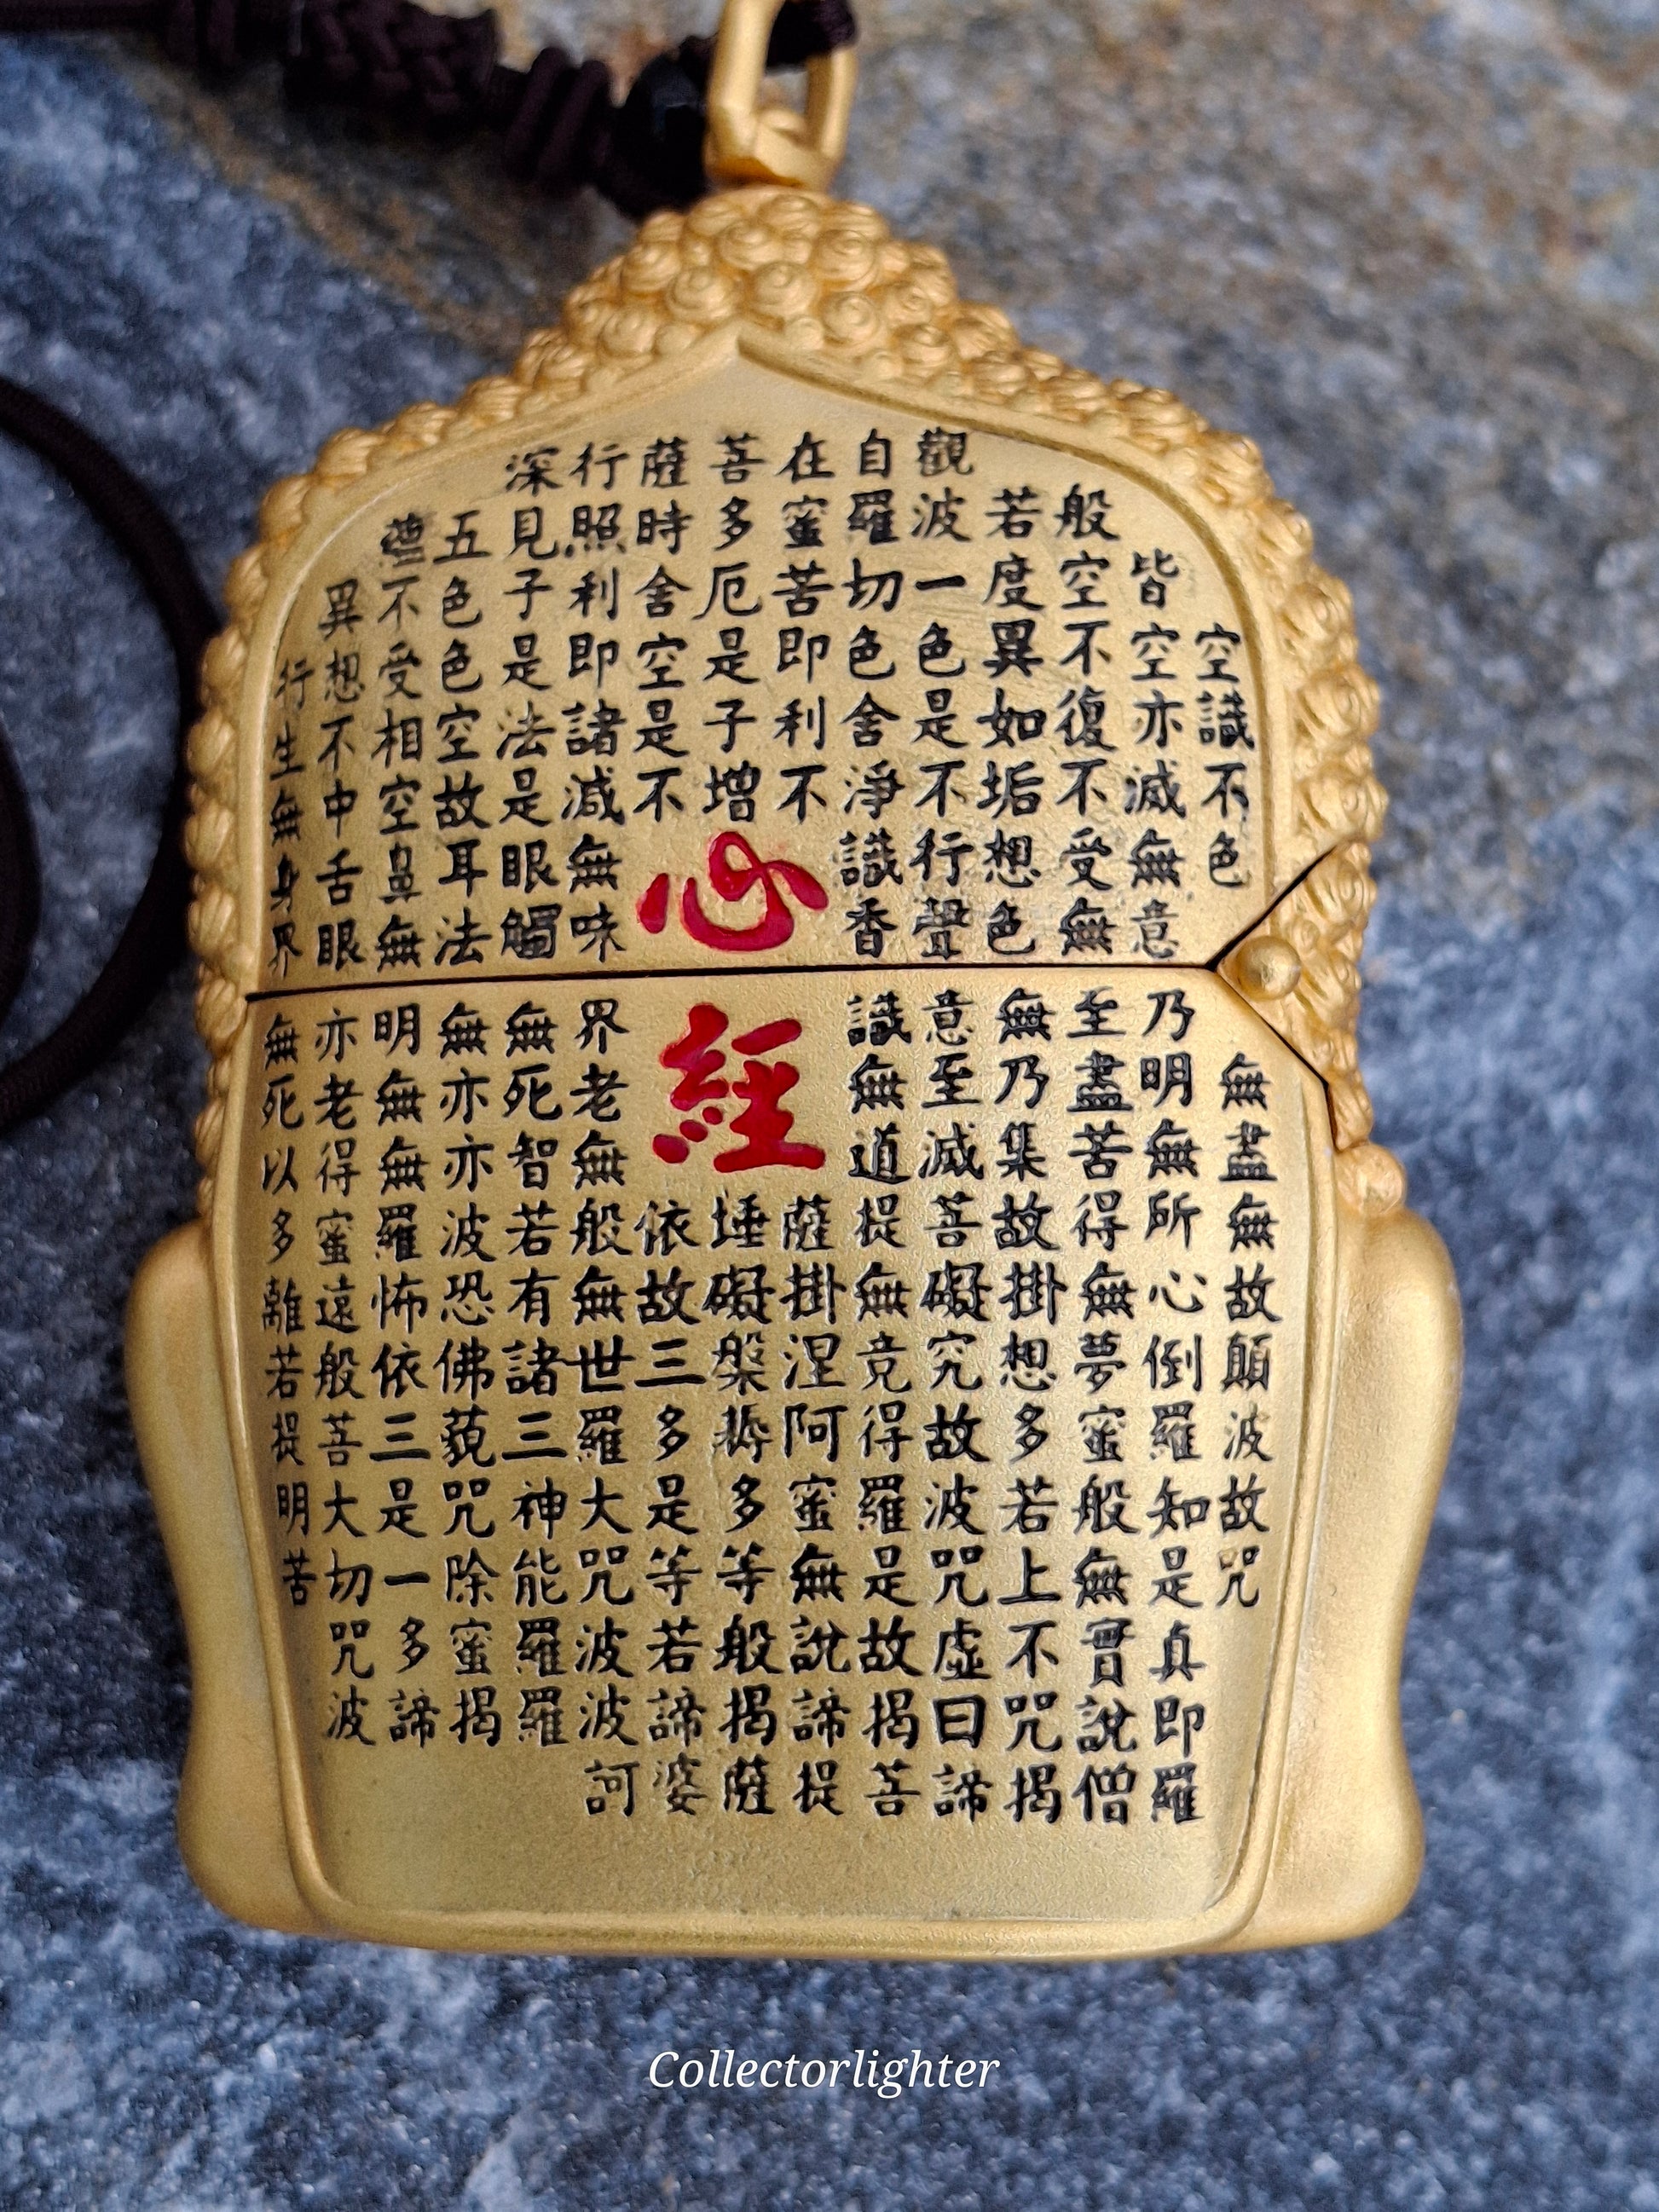 觀自在菩薩行深
般若波羅蜜多時照見五蘊
皆空度一切苦厄舍利子色不異
空空不異色色即是空即是色受想行
識亦復如是舍利子是諸法空相不生
不滅不垢不淨不增不減是故空中無
心經
色無受想行識無眼耳鼻舌身
意無色聲香味觸法無眼界
乃至無意識界無無明亦無
無明盡乃至無老死亦無老死
盡無苦集滅道無智亦無得以
無所得故菩提薩埵依般若波羅蜜多
故心無掛礙無掛礙故無有恐怖遠離
顛倒夢想究竟涅槃三世諸佛依般若
波羅蜜多故得阿耨多羅三藐三菩提
故知般若波羅蜜多是大神咒是大明
咒是無上咒是無等等咒能除一切苦
真實不虛故說般若波羅蜜多咒
即說咒曰揭諦揭諦波羅揭諦波
羅僧揭諦菩提薩婆訶
Collectorlighter